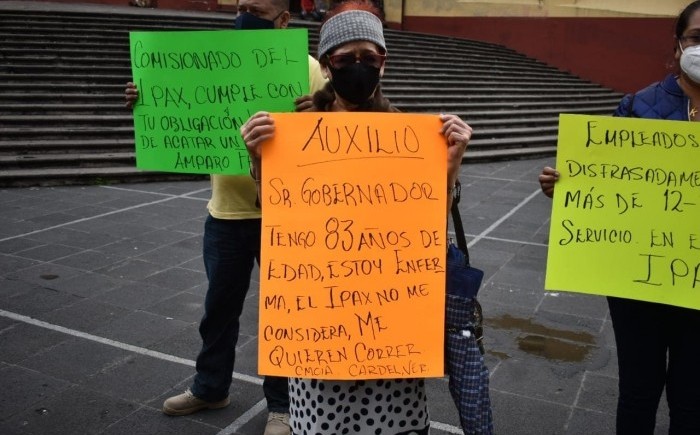 COMISIONADO DEL
IPAX, CUMPLE CON
TU OBLIGACIÓN Y
DE ACATAR UN
AMPARO
AUXILIO
SR. GOBERNADOR
TENGO 83 AÑOS DE
EDAD, ESTOY ENFER
MA, EL IPAX NO ME
CONSIDERA, ME
QUIEREN CORRER
CMCIA. CARDEL, VER
EMPLEADOS
DISFRASADAME
MÁS DE 12-
SERVICIO. EN E
IPA